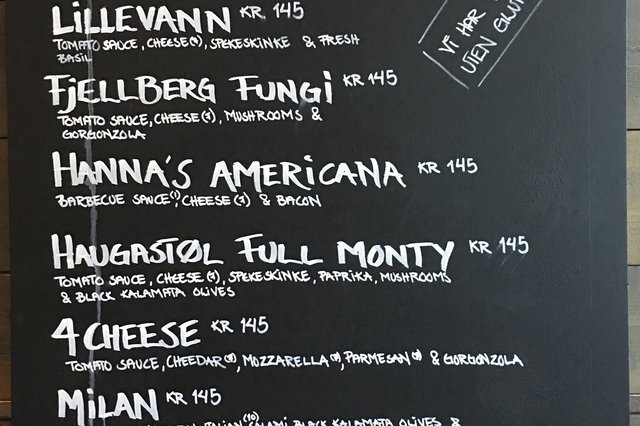 LILLEVANN KR 145
TOMATO SAUCE, CHEESE(7), SPEKESKINKE & FRESH
BASIL
FJELLBERG FUNGI KR 145
TOMATO SAUCE, CHEESE(7), MUSHROOMS &
GORGONZOLA
HANNA'S AMERICANA KR 145
BARBECUE SAUCE(1), CHEESE(7) & BACON
HAUGASTØL FULL MONTY KR 145
TOMATO SAUCE, CHEESE(7), SPEKESKINKE, PAPRIKA, MUSHROOMS
& BLACK KALAMATA OLIVES
4 CHEESE KR 145
TOMATO SAUCE, CHEEDAR, MOZZARELLA, PARMESAN & GORGONZOLA
MILAN KR 145
ITALIAN(10) SALAMI BLACK KALAMATA OLIVES &
VI HAR
UTEN